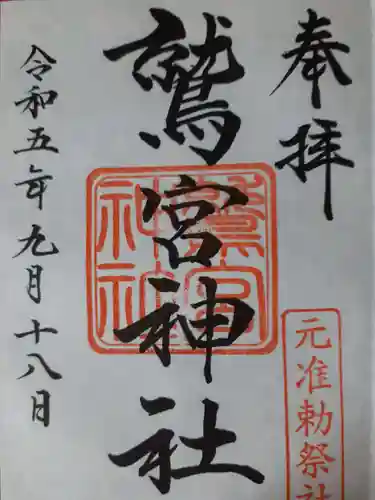 奉拝
鷲宮神社
鷲宮
神社
元准勅祭社
令和五年九月十八日